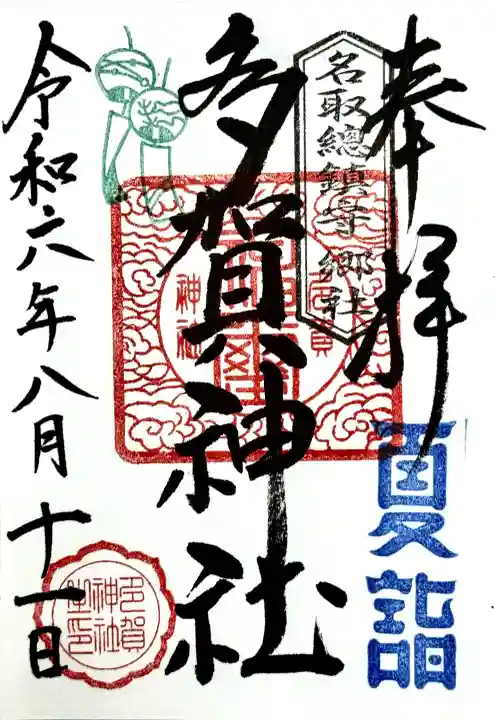 奉拝
名取總鎮守 郷社
夏詣
多賀神社
多賀
神社
令和六年八月十一日
多賀
神社